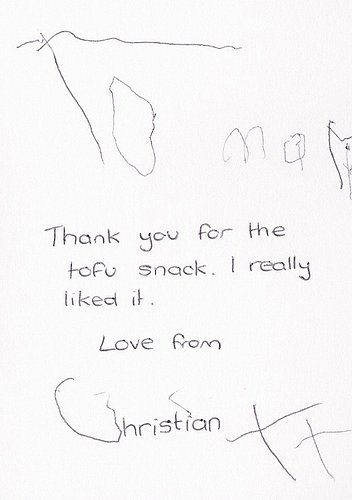 To Ma
Thank you for the
tofu snack. I really
liked it.
Love from
Christian